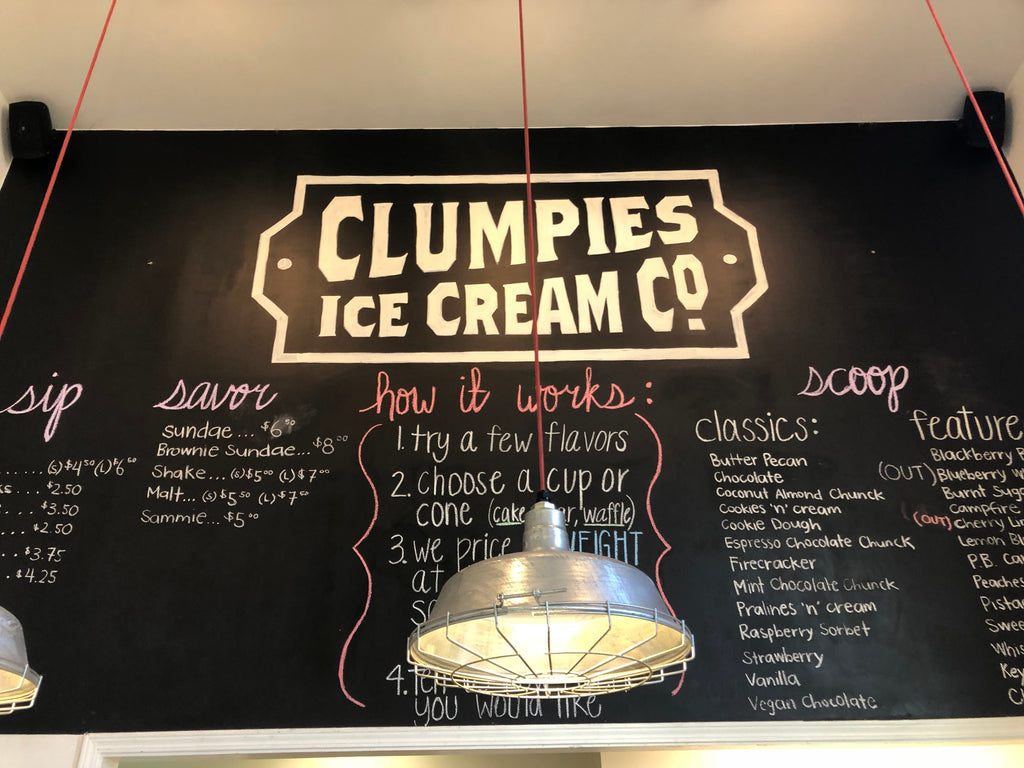 CLUMPIES
ICE CREAM CO.
sip
(s) $4.50 (L) $6.00
$2.50
$3.50
$2.50
$3.75
$4.25
savor
Sundae... $6.00
Brownie Sundae... $8.00
Shake... (s) $5.00 (L) $7.00
Malt... (s) $5.50 (L) $7.50
Sammie... $5.00
how it works:
1. try a few flavors
2. choose a cup or
cone (waffle)
3. we price WEIGHT
at
4.
you would like
scoop
classics:
Butter Pecan
Chocolate
Coconut Almond Chunck
Cookies 'n' cream
Cookie Dough
Espresso Chocolate Chunck
Firecracker
Mint Chocolate Chunck
Pralines 'n' cream
Raspberry Sorbet
Strawberry
Vanilla
Vegan Chocolate
feature
Blackberry
(OUT) Blueberry
Burnt
Campfire
(OUT) Cherry
Lemon
P.B.
Peaches